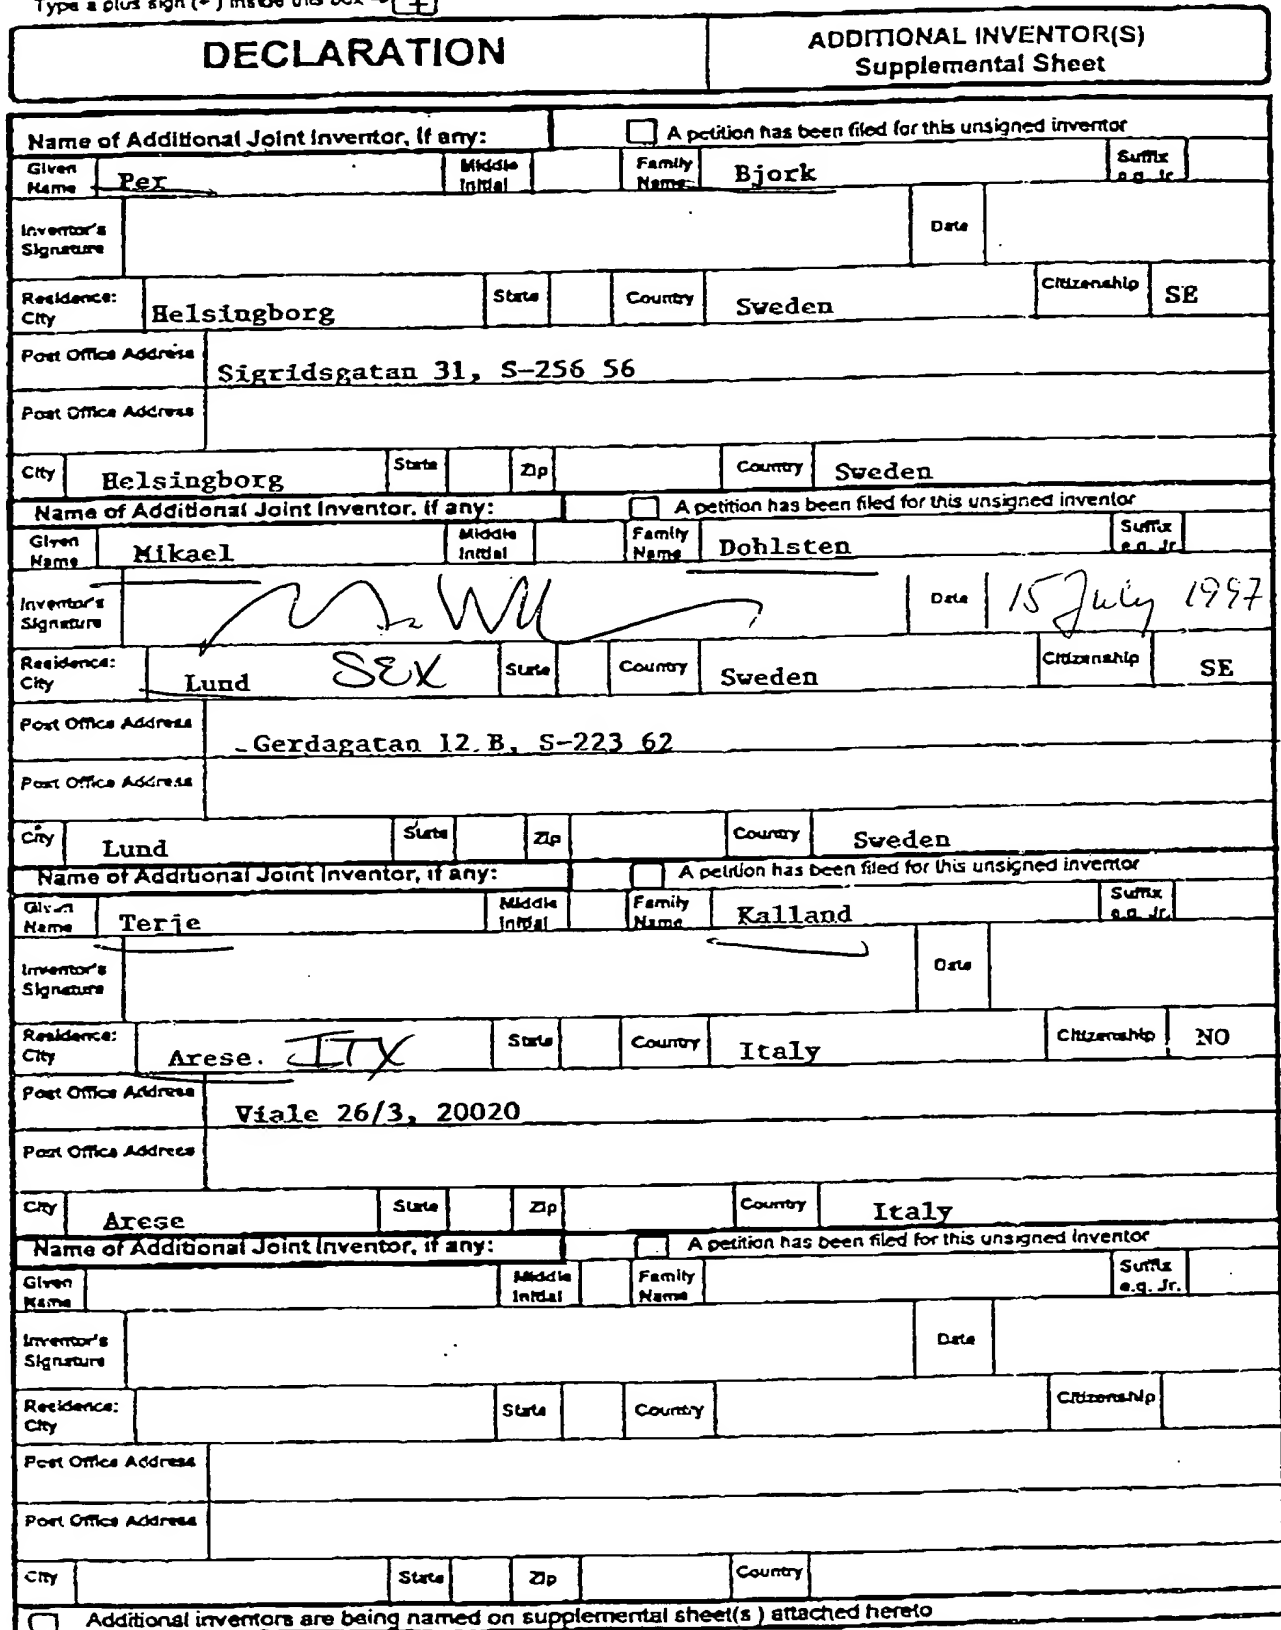 Type a plus sign (+) inside this box → [+]
DECLARATION
ADDITIONAL INVENTOR(S)
Supplemental Sheet
Name of Additional Joint Inventor, if any: A petition has been filed for this unsigned inventor
Given Name Per Middle Initial Family Name Bjork Suffix e.g. Jr.
Inventor's Signature Date
Residence: City Helsingborg State Country Sweden Citizenship SE
Post Office Address Sigridsgatan 31, S-256 56
Post Office Address
City Helsingborg State Zip Country Sweden
Name of Additional Joint Inventor, if any: A petition has been filed for this unsigned inventor
Given Name Mikael Middle Initial Family Name Dohlsten Suffix e.g. Jr.
Inventor's Signature Date 15 July 1997
Residence: City Lund SEX State Country Sweden Citizenship SE
Post Office Address Gerdagatan 12 B, S-223 62
Post Office Address
City Lund State Zip Country Sweden
Name of Additional Joint Inventor, if any: A petition has been filed for this unsigned inventor
Given Name Terje Middle Initial Family Name Kalland Suffix e.g. Jr.
Inventor's Signature Date
Residence: City Arese. ITX State Country Italy Citizenship NO
Post Office Address Viale 26/3, 20020
Post Office Address
City Arese State Zip Country Italy
Name of Additional Joint Inventor, if any: A petition has been filed for this unsigned inventor
Given Name Middle Initial Family Name Suffix e.g. Jr.
Inventor's Signature Date
Residence: City State Country Citizenship
Post Office Address
Post Office Address
City State Zip Country
Additional inventors are being named on supplemental sheet(s) attached hereto